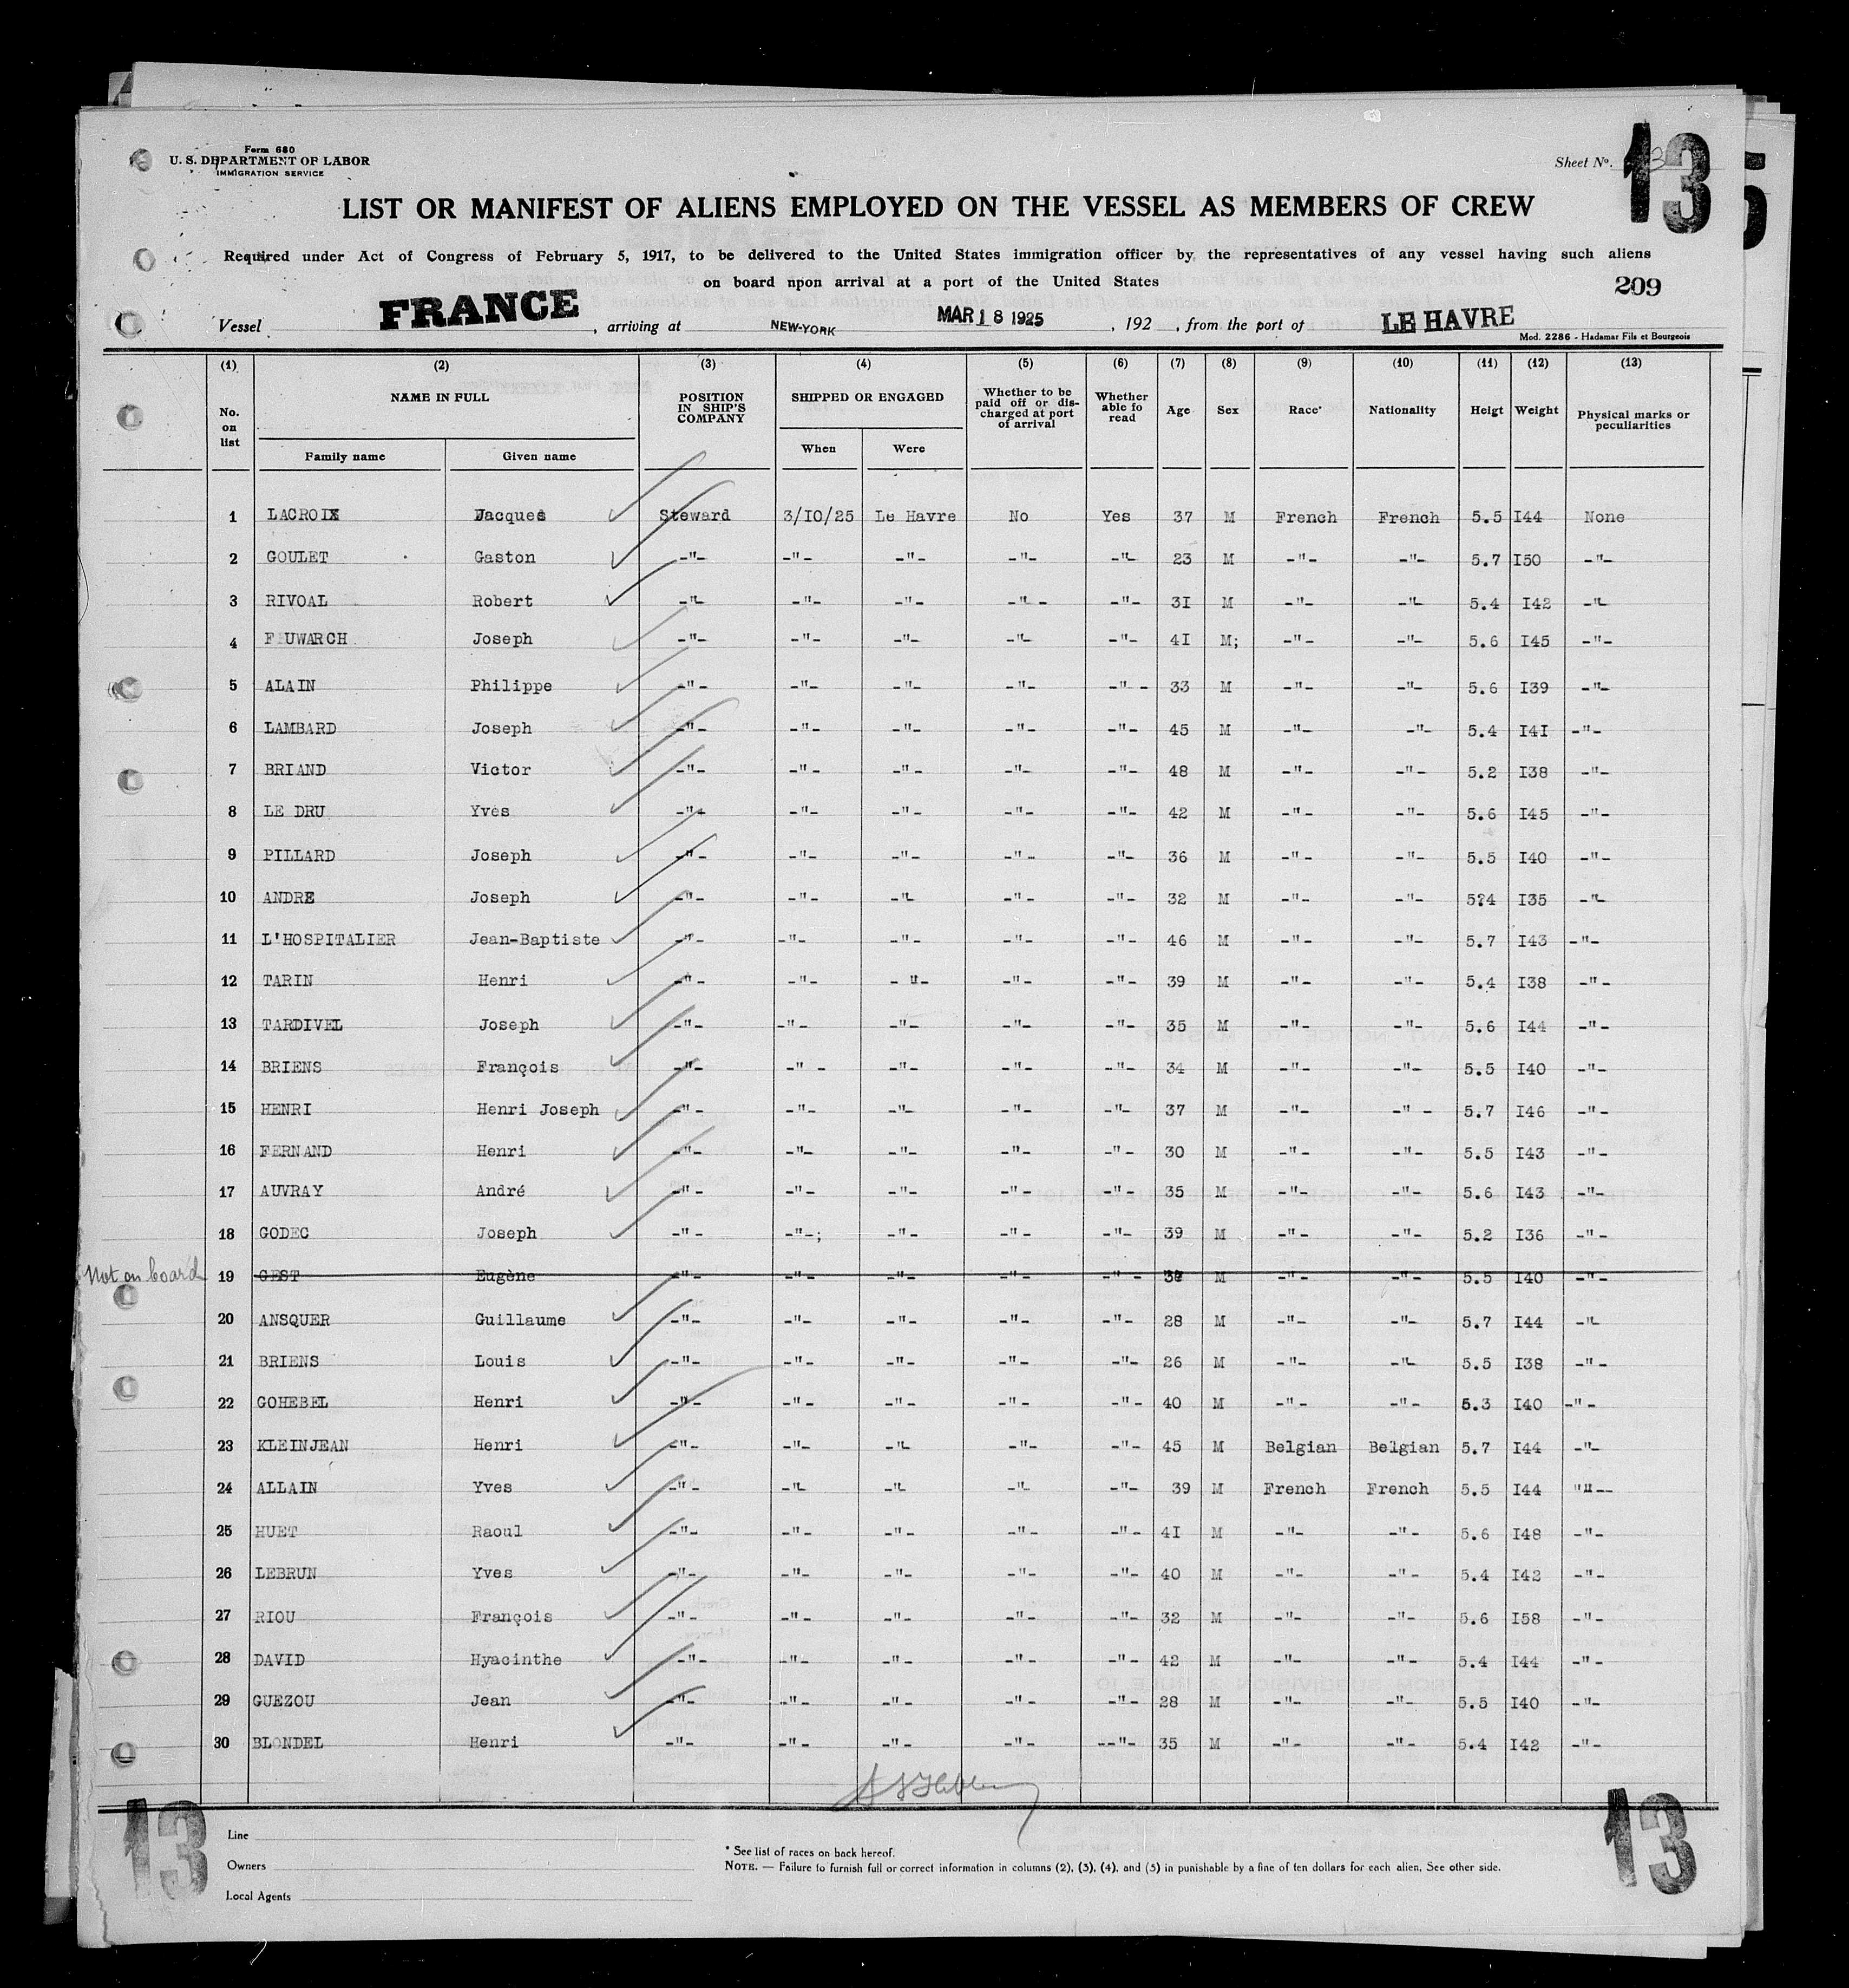 Form 680
U. S. DEPARTMENT OF LABOR
IMMIGRATION SERVICE
Sheet No. 13
LIST OR MANIFEST OF ALIENS EMPLOYED ON THE VESSEL AS MEMBERS OF CREW
Required under Act of Congress of February 5, 1917, to be delivered to the United States immigration officer by the representatives of any vessel having such aliens
on board npon arrival at a port of the United States
209
Vessel FRANCE , arriving at NEW-YORK MAR 18 1925 , 192 , from the port of LE HAVRE
Mod. 2286 - Hadamar Fils et Bourgeois
(1) (2) (3) (4) (5) (6) (7) (8) (9) (10) (11) (12) (13)
No. on list NAME IN FULL POSITION IN SHIP'S COMPANY SHIPPED OR ENGAGED Whether to be paid off or discharged at port of arrival Whether able fo read Age Sex Race* Nationality Heigt Weight Physical marks or peculiarities
Family name Given name When Were
1 LACROIX Jacques Steward 3/I0/25 Le Havre No Yes 37 M French French 5.5 I44 None
2 GOULET Gaston -"- -"- -"- -"- -"- 23 M -"- -"- 5.7 I50 -"-
3 RIVOAL Robert -"- -"- -"- -"- -"- 3I M -"- -"- 5.4 I42 -"-
4 F UWARCH Joseph -"- -"- -"- -"- -"- 4I M; -"- -"- 5.6 I45 -"-
5 ALAIN Philippe -"- -"- -"- -"- -"- 33 M -"- -"- 5.6 I39 -"-
6 LAMBARD Joseph -"- -"- -"- -"- -"- 45 M -"- -"- 5.4 I4I -"-
7 BRIAND Victor -"- -"- -"- -"- -"- 48 M -"- -"- 5.2 I38 -"-
8 LE DRU Yves -"- -"- -"- -"- -"- 42 M -"- -"- 5.6 I45 -"-
9 PILLARD Joseph -"- -"- -"- -"- -"- 36 M -"- -"- 5.5 I40 -"-
10 ANDRE Joseph -"- -"- -"- -"- -"- 32 M -"- -"- 5?4 I35 -"-
11 L'HOSPITALIER Jean-Baptiste -"- -"- -"- -"- -"- 46 M -"- -"- 5.7 I43 -"-
12 TARIN Henri -"- -"- -"- -"- -"- 39 M -"- -"- 5.4 I38 -"-
13 TARDIVEL Joseph -"- -"- -"- -"- -"- 35 M -"- -"- 5.6 I44 -"-
14 BRIENS François -"- -"- -"- -"- -"- 34 M -"- -"- 5.5 I40 -"-
15 HENRI Henri Joseph -"- -"- -"- -"- -"- 37 M -"- -"- 5.7 I46 -"-
16 FERNAND Henri -"- -"- -"- -"- -"- 30 M -"- -"- 5.5 I43 -"-
17 AUVRAY André -"- -"- -"- -"- -"- 35 M -"- -"- 5.6 I43 -"-
18 GODEC Joseph -"- -"-; -"- -"- -"- 39 M -"- -"- 5.2 I36 -"-
Not on board 19 GEST Eugène -"- -"- -"- -"- -"- M -"- -"- 5.5 I40 -"-
20 ANSQUER Guillaume -"- -"- -"- -"- -"- 28 M -"- -"- 5.7 I44 -"-
21 BRIENS Louis -"- -"- -"- -"- -"- 26 M -"- -"- 5.5 I38 -"-
22 GOHEBEL Henri -"- -"- -"- -"- -"- 40 M -"- -"- 5.3 I40 -"-
23 KLEINJEAN Henri -"- -"- -"- -"- -"- 45 M Belgian Belgian 5.7 I44 -"-
24 ALLAIN Yves -"- -"- -"- -"- -"- 39 M French French 5.5 I44 ""--
25 HUET Raoul -"- -"- -"- -"- -"- 4I M -"- -"- 5.6 I48 -"-
26 LEBRUN Yves -"- -"- -"- -"- -"- 40 M -"- -"- 5.4 I42 -"-
27 RIOU François -"- -"- -"- -"- -"- 32 M -"- -"- 5.6 I58 -"-
28 DAVID Hyacinthe -"- -"- -"- -"- -"- 42 M -"- -"- 5.4 I44 -"-
29 GUEZOU Jean -"- -"- -"- -"- -"- 28 M -"- -"- 5.5 I40 -"-
30 BLONDEL Henri -"- -"- -"- -"- --"- 35 M -"- -"- 5.4 I42 -"-
13
13
Line
Owners
Local Agents
* See list of races on back hereof.
NOTE. — Failure to furnish full or correct information in columns (2), (3), (4), and (5) in punishable by a fine of ten dollars for each alien, See other side.